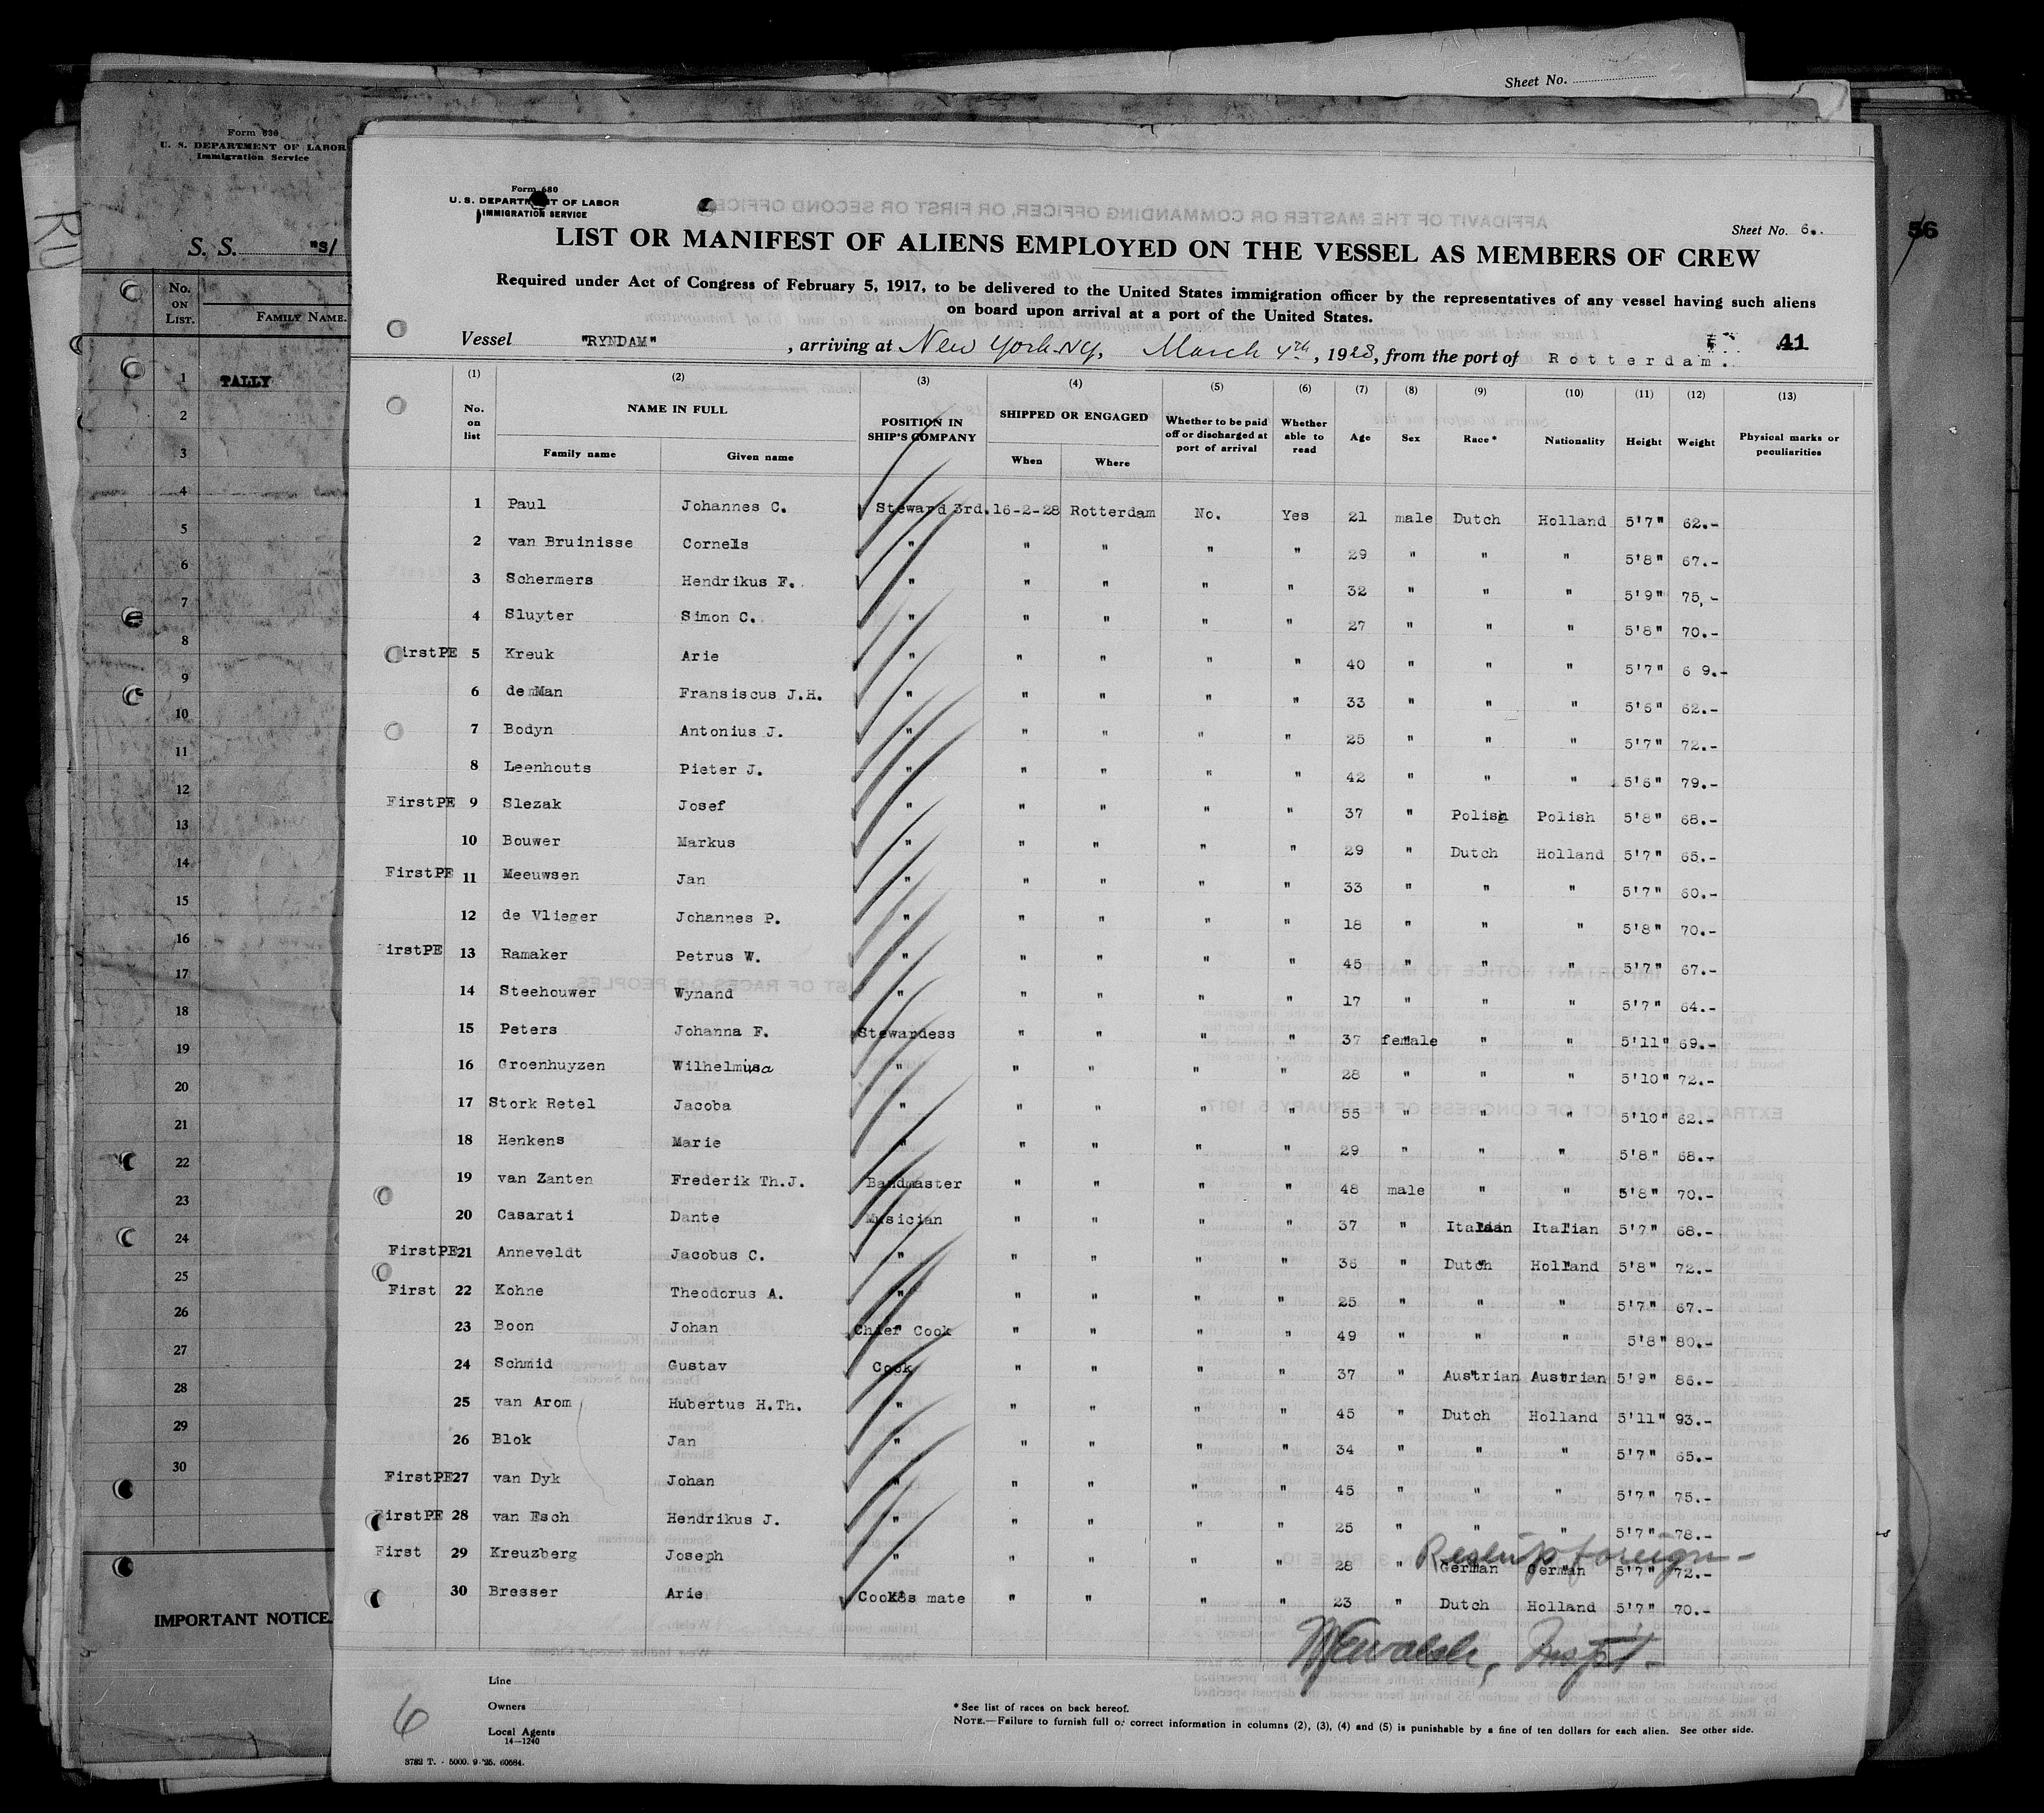 Sheet No.
Form 630
U. S. DEPARTMENT OF LABOR
Immigration Service
S. S. "S/
No. ON LIST.
FAMILY NAME.
1 TALLY
2
3
4
5
6
7
8
9
10
11
12
13
14
15
16
17
18
19
20
21
22
23
24
25
26
27
28
29
30
IMPORTANT NOTICE.
56
Form 680
U. S. DEPARTMENT OF LABOR
IMMIGRATION SERVICE
Sheet No. 6.
LIST OR MANIFEST OF ALIENS EMPLOYED ON THE VESSEL AS MEMBERS OF CREW
Required under Act of Congress of February 5, 1917, to be delivered to the United States immigration officer by the representatives of any vessel having such aliens
on board upon arrival at a port of the United States.
41
Vessel "RYNDAM", arriving at New York. NY, March 4th, 1928, from the port of Rotterdam.
(1) (2) (3) (4) (5) (6) (7) (8) (9) (10) (11) (12) (13)
No. on list NAME IN FULL POSITION IN SHIP'S COMPANY SHIPPED OR ENGAGED Whether to be paid off or discharged at port of arrival Whether able to read Age Sex Race* Nationality Height Weight Physical marks or peculiarities
Family name Given name When Where
1 Paul Johannes C. Steward 3rd. 16-2-28 Rotterdam No. Yes 21 male Dutch Holland 5'7" 62.-
2 van Bruinisse Cornels " " " " " 29 " " " 5'8" 67.-
3 Schermers Hendrikus F. " " " " " 32 " " " 5'9" 75,-
4 Sluyter Simon C. " " " " " 27 " " " 5'8" 70.-
irstPE 5 Kreuk Arie " " " " " 40 " " " 5'7" 6 9.-
6 de Man Fransiscus J.H. " " " " " 33 " " " 5'6" 62.-
7 Bodyn Antonius J. " " " " " 25 " " " 5'7" 72.-
8 Leenhouts Pieter J. " " " " " 42 " " " 5'6" 79.-
FirstPE 9 Slezak Josef " " " " " 37 " Polish Polish 5'8" 68.-
10 Bouwer Markus " " " " " 29 " Dutch Holland 5'7" 65.-
FirstPE 11 Meeuwsen Jan " " " " " 33 " " " 5'7" 60.-
12 de Vlieger Johannes P. " " " " " 18 " " " 5'8" 70.-
irstPE 13 Ramaker Petrus W. " " " " " 45 " " " 5'7" 67.-
14 Steehouwer Wynand " " " " " 17 " " " 5'7" 64.-
15 Peters Johanna F. Stewardess " " " " 37 female " " 5'11" 69.-
16 Groenhuyzen Wilhelmina " " " " " 28 " " " 5'10" 72.-
17 Stork Retel Jacoba " " " " " 55 " " " 5'10" 62.-
18 Henkens Marie " " " " " 29 " " " 5'8" 68.-
19 van Zanten Frederik Th.J. Bandmaster " " " " 48 male " " 5'8" 70.-
20 Casarati Dante Musician " " " " 37 " Italian Italian 5'7" 68.-
FirstPE 21 Anneveldt Jacobus C. " " " " " 36 " Dutch Holland 5'8" 72.-
First 22 Kohne Theodorus A. " " " " " 25 " " " 5'7" 67.-
23 Boon Johan Chief Cook " " " " 49 " " " 5'8" 80.-
24 Schmid Gustav Cook " " " " 37 " Austrian Austrian 5'9" 86.-
25 van Arom Hubertus H.Th. " " " " " 45 " Dutch Holland 5'11" 93.-
26 Blok Jan " " " " " 34 " " " 5'7" 65.-
FirstPE 27 van Dyk Johan " " " " " 45 " " " 5'7" 75.-
irstPE 28 van Esch Hendrikus J. " " " " " 25 " " " 5'7" 78.-
Reship foreign -
First 29 Kreuzberg Joseph " " " " " 28 " German German 5'7" 72.-
30 Bresser Arie Cook's mate " " " " 23 " Dutch Holland 5'7" 70.-
Inspt.
Line
Owners
Local Agents
14—1240
6
* See list of races on back hereof.
NOTE.—Failure to furnish full or correct information in columns (2), (3), (4) and (5) is punishable by a fine of ten dollars for each alien. See other side.
3782 T. - 5000. 9-'25. 60584.